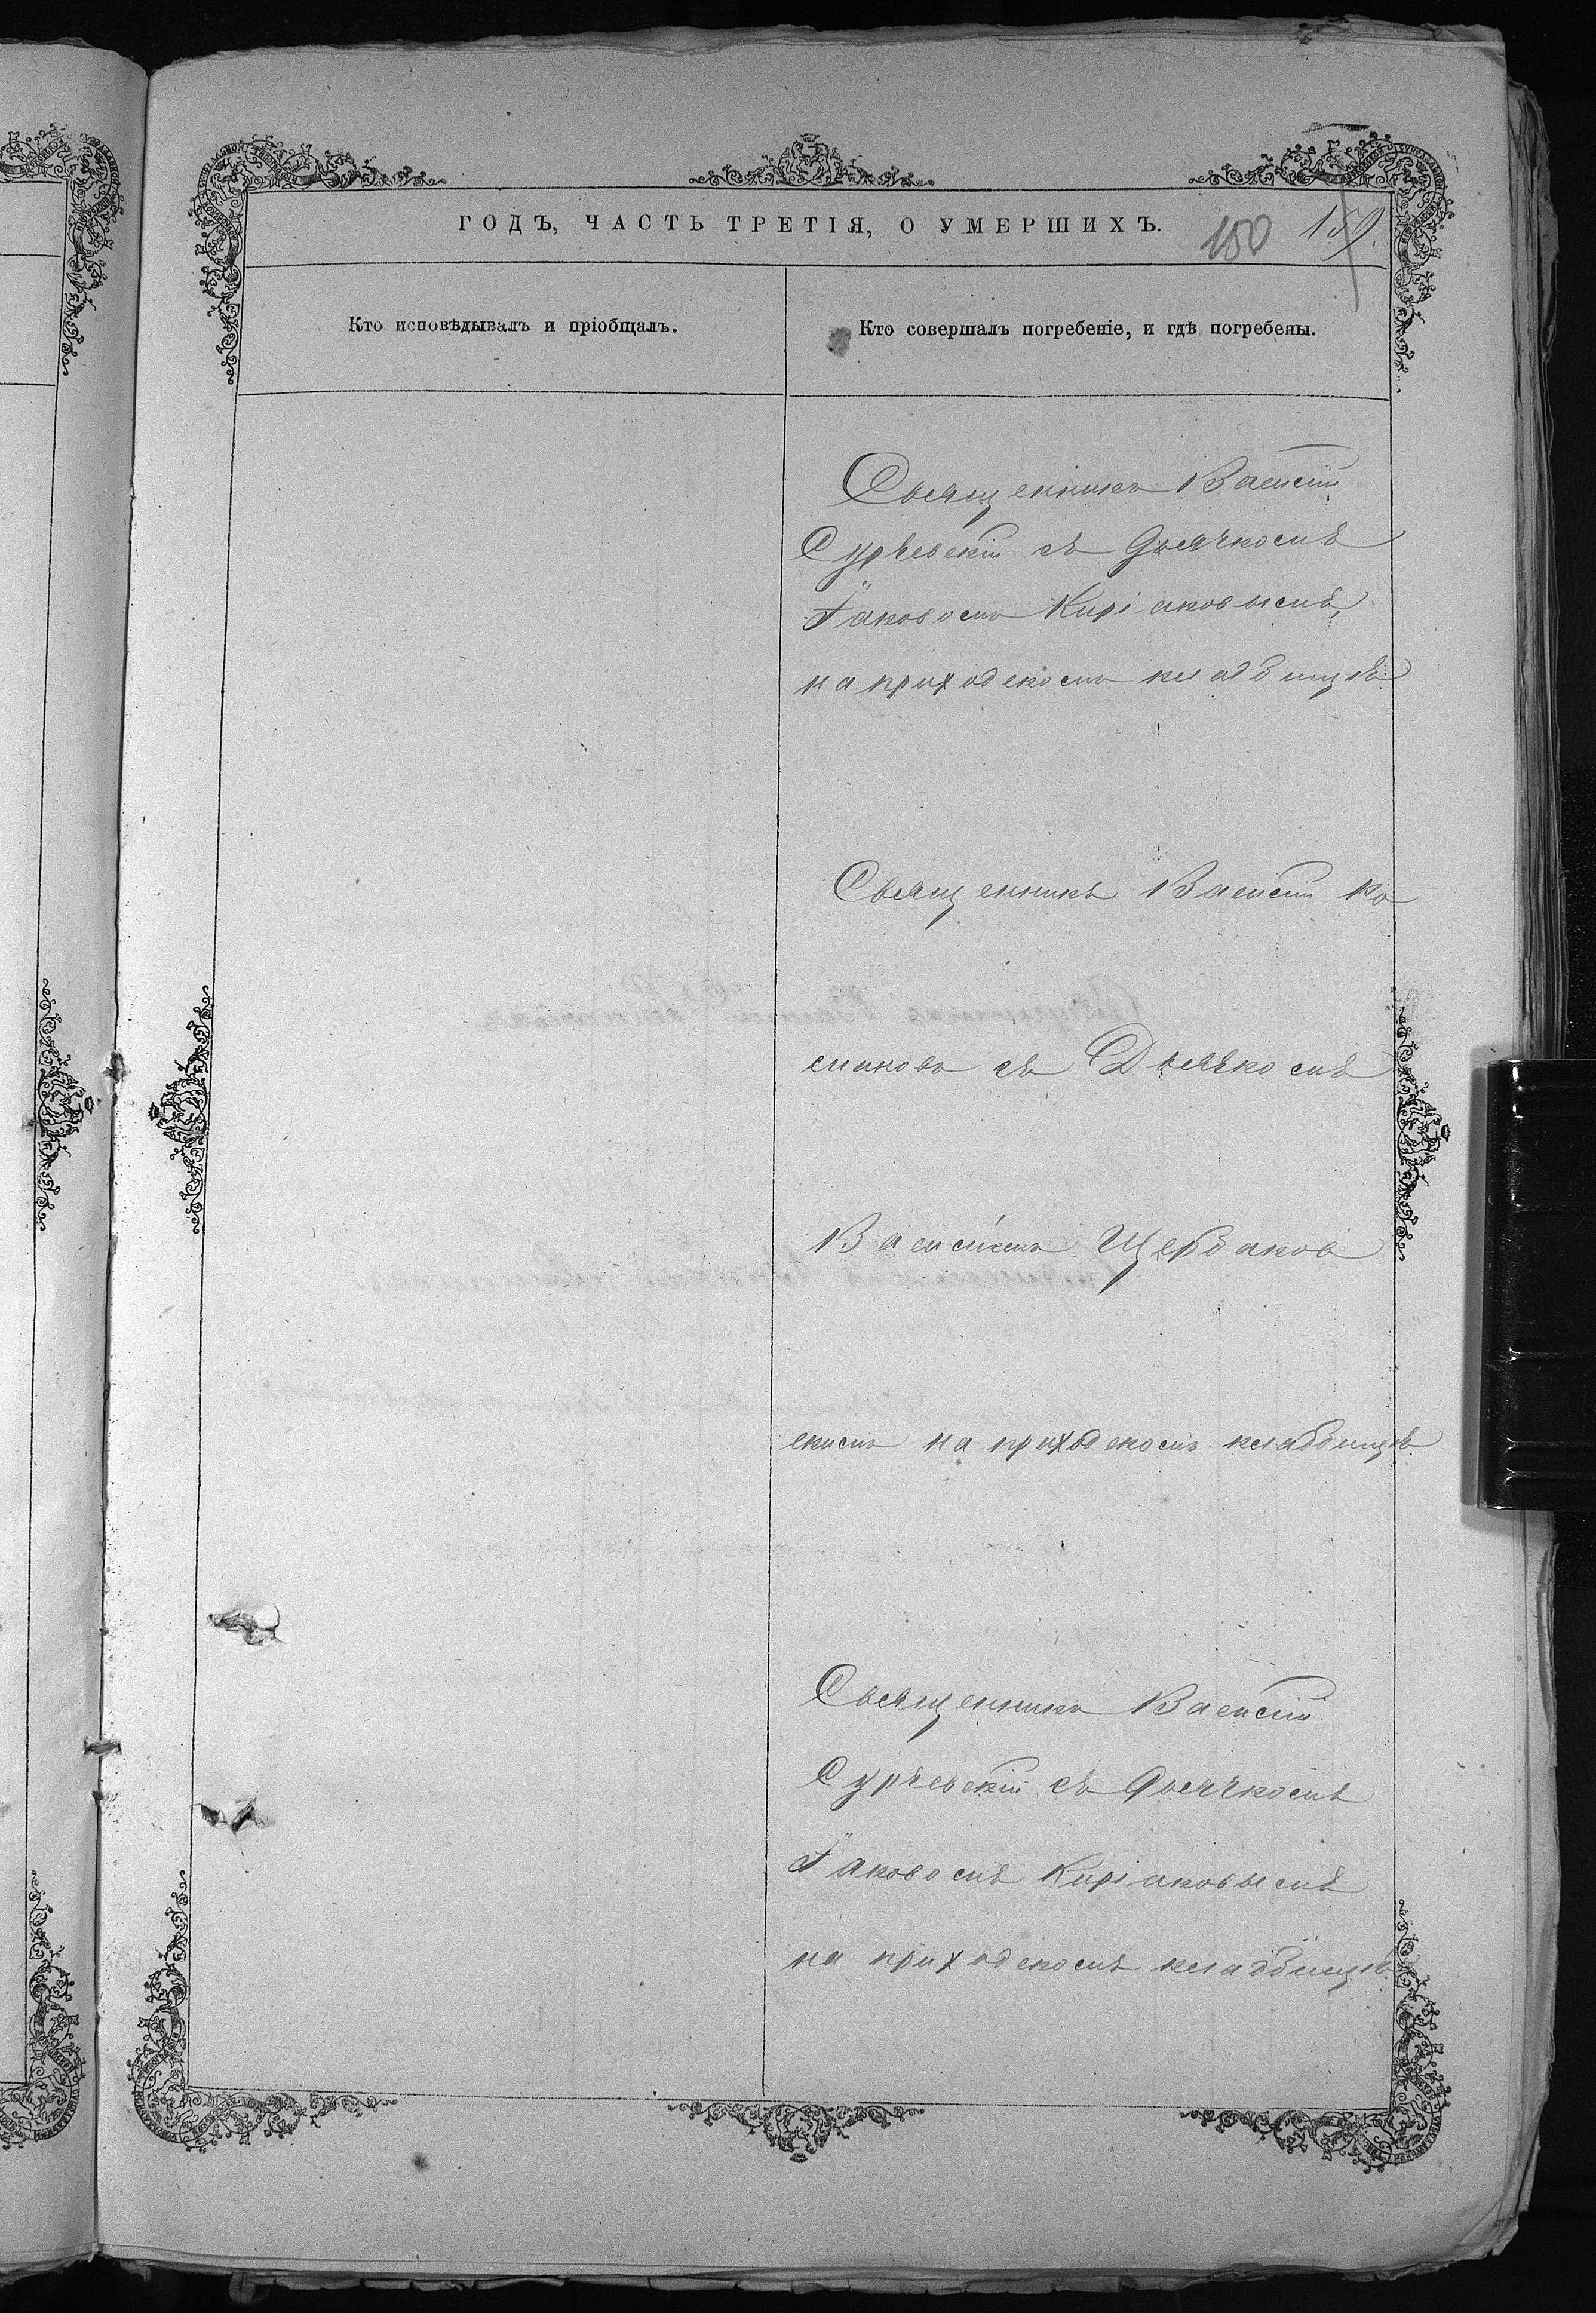 ГОДЪ, ЧАСТЬ ТРЕТІЯ, О УМЕРШИХЪ.
150 159.
Кто исповѣдывалъ и пріобщалъ.
Кто совершалъ погребеніе, и гдѣ погребены.
Священникъ Василій
Сурчевскій съ Дьячкомъ
Іаковомъ Киріаковымъ,
на приходскомъ кладбищѣ
Священникъ Василій Ко
смаковъ съ Дьячкомъ
Василіемъ Щербаков
скимъ на приходскомъ кладбищѣ
Священникъ Василій
Сурчевскій съ Дьячкомъ
Іаковомъ Киріаковымъ
на приходскомъ кладбищѣ